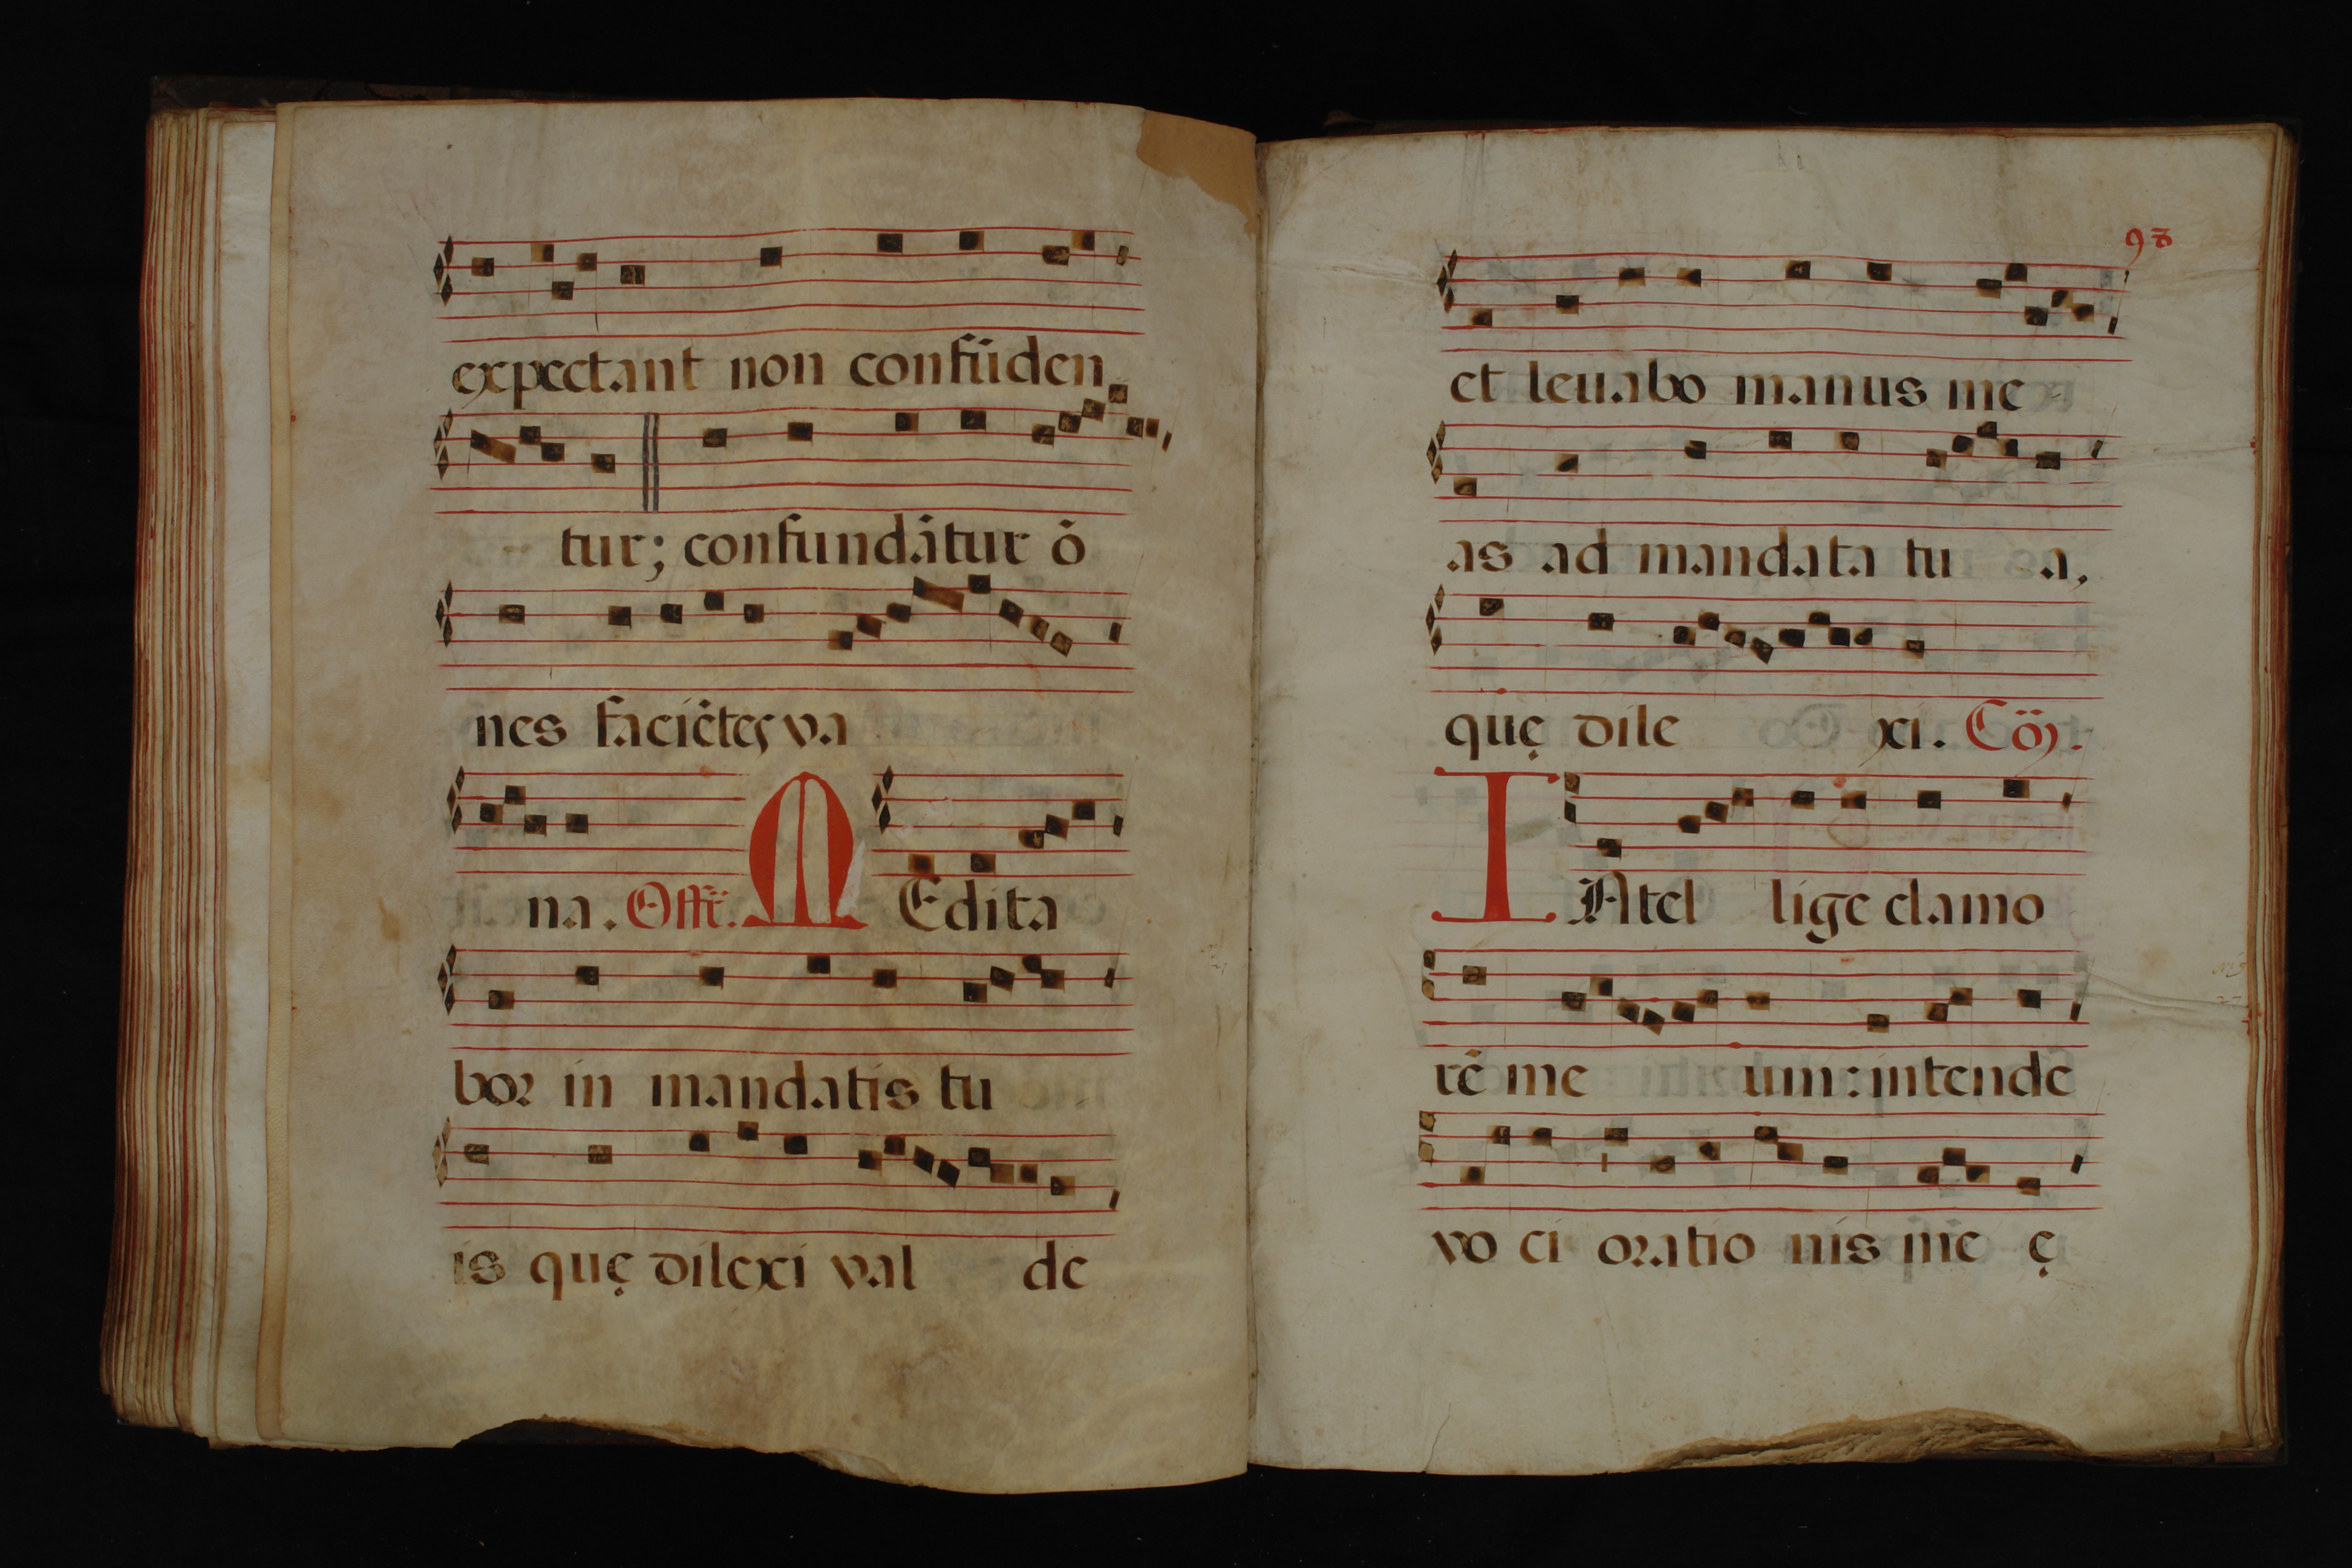 expectant non confũden
tur; confundãtur õ
nes faciẽtes va
na. Offr̃. M Edita
bor in mandatis tu
is quę dilexi val de
et leuabo manus me
as ad mandata tu a,
quę dile xi. Cõ.
I Ntel lige clamo
rẽ me um: intende
vo ci oratio nis me ę